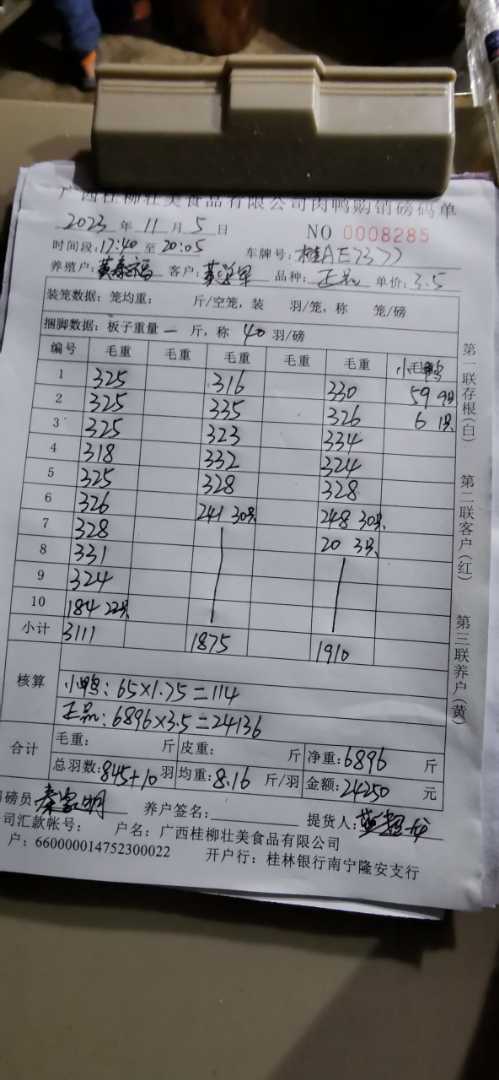 广西桂柳壮美食品有限公司肉鸭购销磅码单
2023 年 11 月 5 日 NO 0008285
时间段:17:40 至 20:05 车牌号: 桂AE7377
养殖户: 客户: 品种: 正品 单价: 3.5
装笼数据: 笼均重: 斤/空笼, 装 羽/笼, 称 笼/磅
捆脚数据: 板子重量 一 斤, 称 40 羽/磅
编号 毛重 毛重 毛重 毛重 毛重 小毛鸭
1 325 316 330 59 4只
2 325 335 326 6 1只
3 325 323 334
4 318 332 324
5 325 328 328
6 326 241 30只 248 30只
7 328 20 3只
8 331
9 324
10 184 22只
小计 3111 1875 1910
核算 小鸭: 65×1.75=114
正品: 6896×3.5=24136
合计 毛重: 斤 皮重: 斤 净重: 6896 斤
总羽数: 845+10 羽 均重: 8.16 斤/羽 金额: 24250 元
磅员 养户签名: 提货人:
司汇款帐号: 户名: 广西桂柳壮美食品有限公司
户: 660000014752300022 开户行: 桂林银行南宁隆安支行
第一联存根(白)
第二联客户(红)
第三联养户(黄)